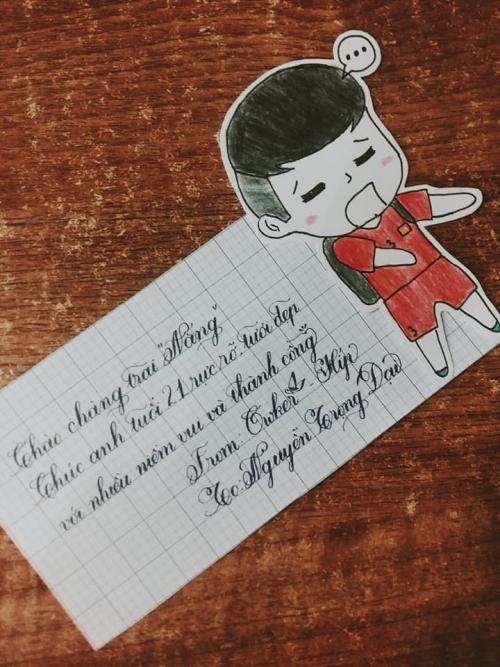 ...
Chào chàng trai "Nắng"
Chúc anh tuổi 21 rực rỡ, tươi đẹp
với nhiều niềm vui và thành công
From: Cwker - Híp
To: Nguyễn Trọng Đạo
3
3